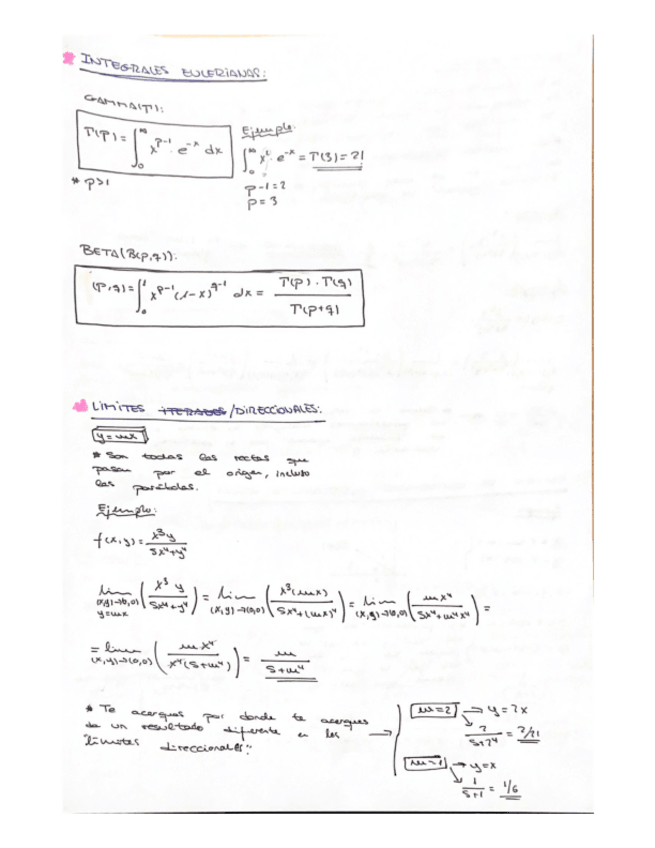 * INTEGRALES EULERIANAS:
GAMMA(Γ):
Γ(p) = ∫₀^∞ x^(p-1) · e^(-x) dx
* p>1
Ejemplo:
∫₀^∞ x² · e^(-x) = Γ(3) = 2!
p-1=2
p=3
BETA(β(p,q)):
(p,q) = ∫₀^1 x^(p-1) (1-x)^(q-1) dx = Γ(p) · Γ(q) / Γ(p+q)
LIMITES ITERADOS /DIRECCIONALES:
y=mx
* Son todas las rectas que
pasan por el origen, incluso
las parábolas.
Ejemplo:
f(x,y) = x³y / 5x⁴+y⁴
lim (x,y)→(0,0) y=mx (x³ y / 5x⁴+y⁴) = lim (x,y)→(0,0) (x³(mx) / 5x⁴+(mx)⁴) = lim (x,y)→(0,0) (mx⁴ / 5x⁴+m⁴x⁴) =
= lim (x,y)→(0,0) (mx⁴ / x⁴(5+m⁴)) = m / 5+m⁴
* Te acerques por donde te acerques
da un resultado diferente en los
"límites direccionales".
m=2 → y=2x
2 / 5+2⁴ = 2/21
m=1 → y=x
1 / 5+1 = 1/6